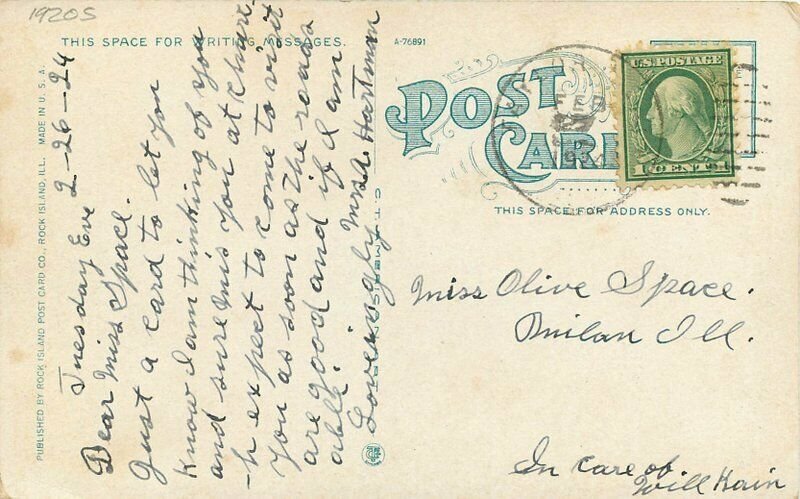 1920S
THIS SPACE FOR WRITING MESSAGES.
A-76891
POST
CARD
FEB
27
U.S. POSTAGE
1 CENT 1
THIS SPACE FOR ADDRESS ONLY.
PUBLISHED BY ROCK ISLAND POST CARD CO., ROCK ISLAND, ILL. MADE IN U. S. A.
Tuesday Eve 2-26-24
Dear Miss Space.
Just a card to let you
know I am thinking of you
and sure mis you at Church
expect to come to visit
you as soon as the roads
are good and if I am
able.
Loveingly Mrs A. Hartman
Miss Olive Space.
Milan Ill.
In care of
Will Hain